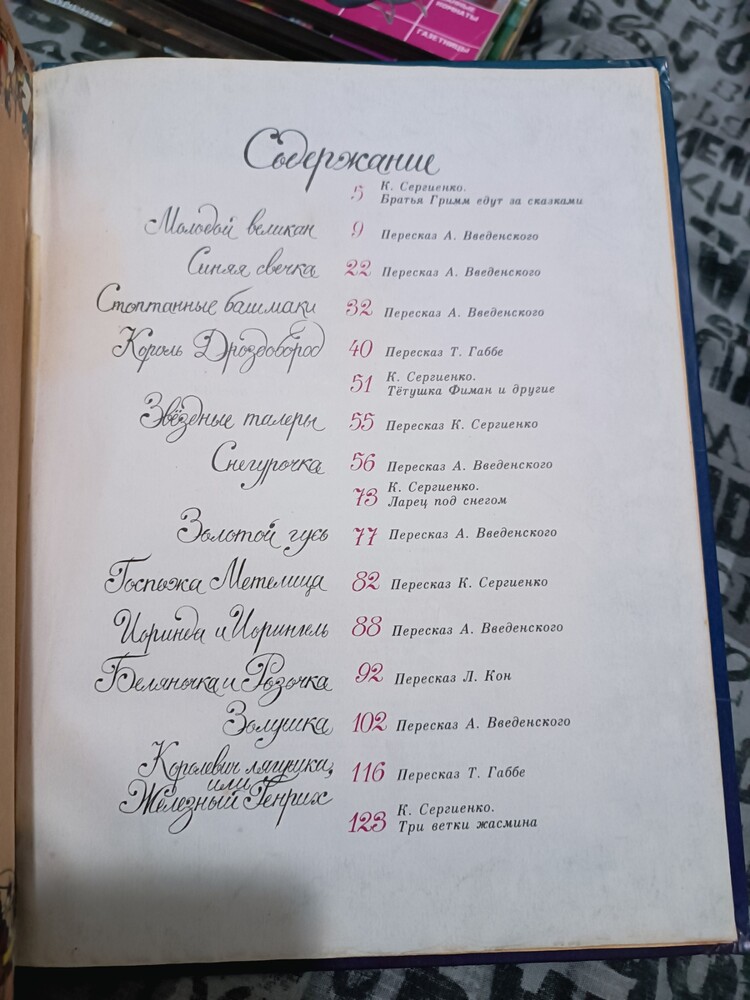 ГАЗЕТНИЦЫ
Содержание
5 К. Сергиенко.
Братья Гримм едут за сказками
Молодой великан 9 Пересказ А. Введенского
Синяя свечка 22 Пересказ А. Введенского
Стоптанные башмаки 32 Пересказ А. Введенского
Король Дроздобород 40 Пересказ Т. Габбе
51 К. Сергиенко.
Тётушка Фиман и другие
Звёздные талеры 55 Пересказ К. Сергиенко
Снегурочка 56 Пересказ А. Введенского
73 К. Сергиенко.
Ларец под снегом
Золотой гусь 77 Пересказ А. Введенского
Госпожа Метелица 82 Пересказ К. Сергиенко
Иоринда и Иорингель 88 Пересказ А. Введенского
Беляночка и Розочка 92 Пересказ Л. Кон
Золушка 102 Пересказ А. Введенского
Королевич лягушка,
или 116 Пересказ Т. Габбе
Железный Генрих
123 К. Сергиенко.
Три ветки жасмина